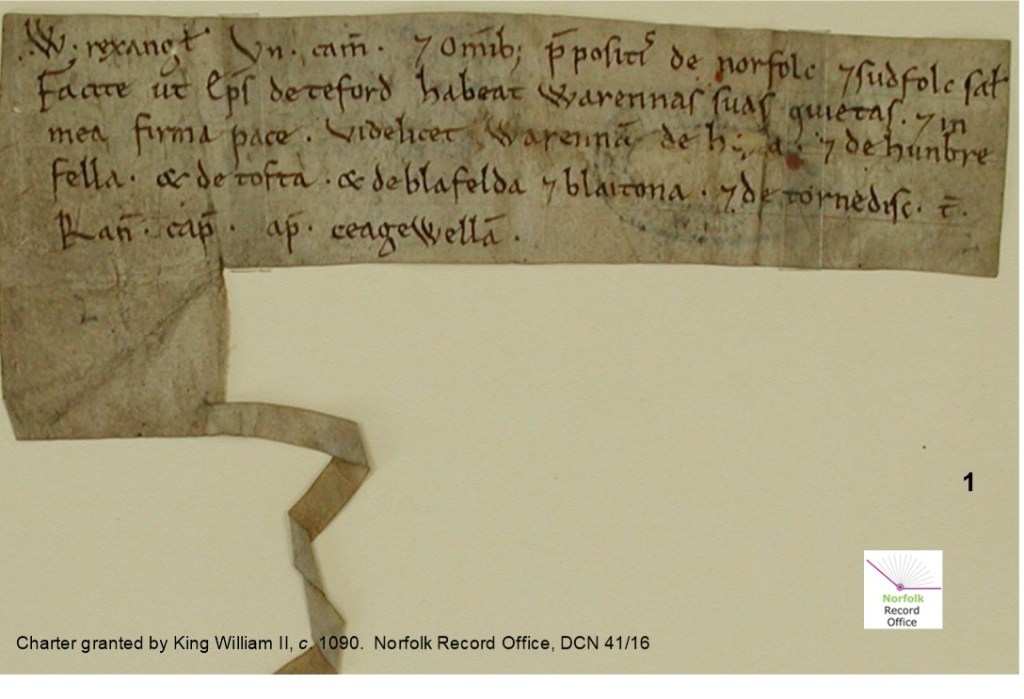 .W. rex angł Vn. cam̄. ⁊ Omib; p̄positis de norfolc ⁊ sudfolc sał
Facite ut Ep̄s de teford habeat Warennas suas quietas. ⁊ in
mea firma pace. Videlicet Warennā de ⁊ de hunbre
fella. & de tofta. & de blafelda ⁊ blaitona. ⁊ de tornedisc. t̄.
Ran̄. cap̄. ap̄. ceageWellā.
1
Norfolk
Record
Office
Charter granted by King William II, c. 1090. Norfolk Record Office, DCN 41/16